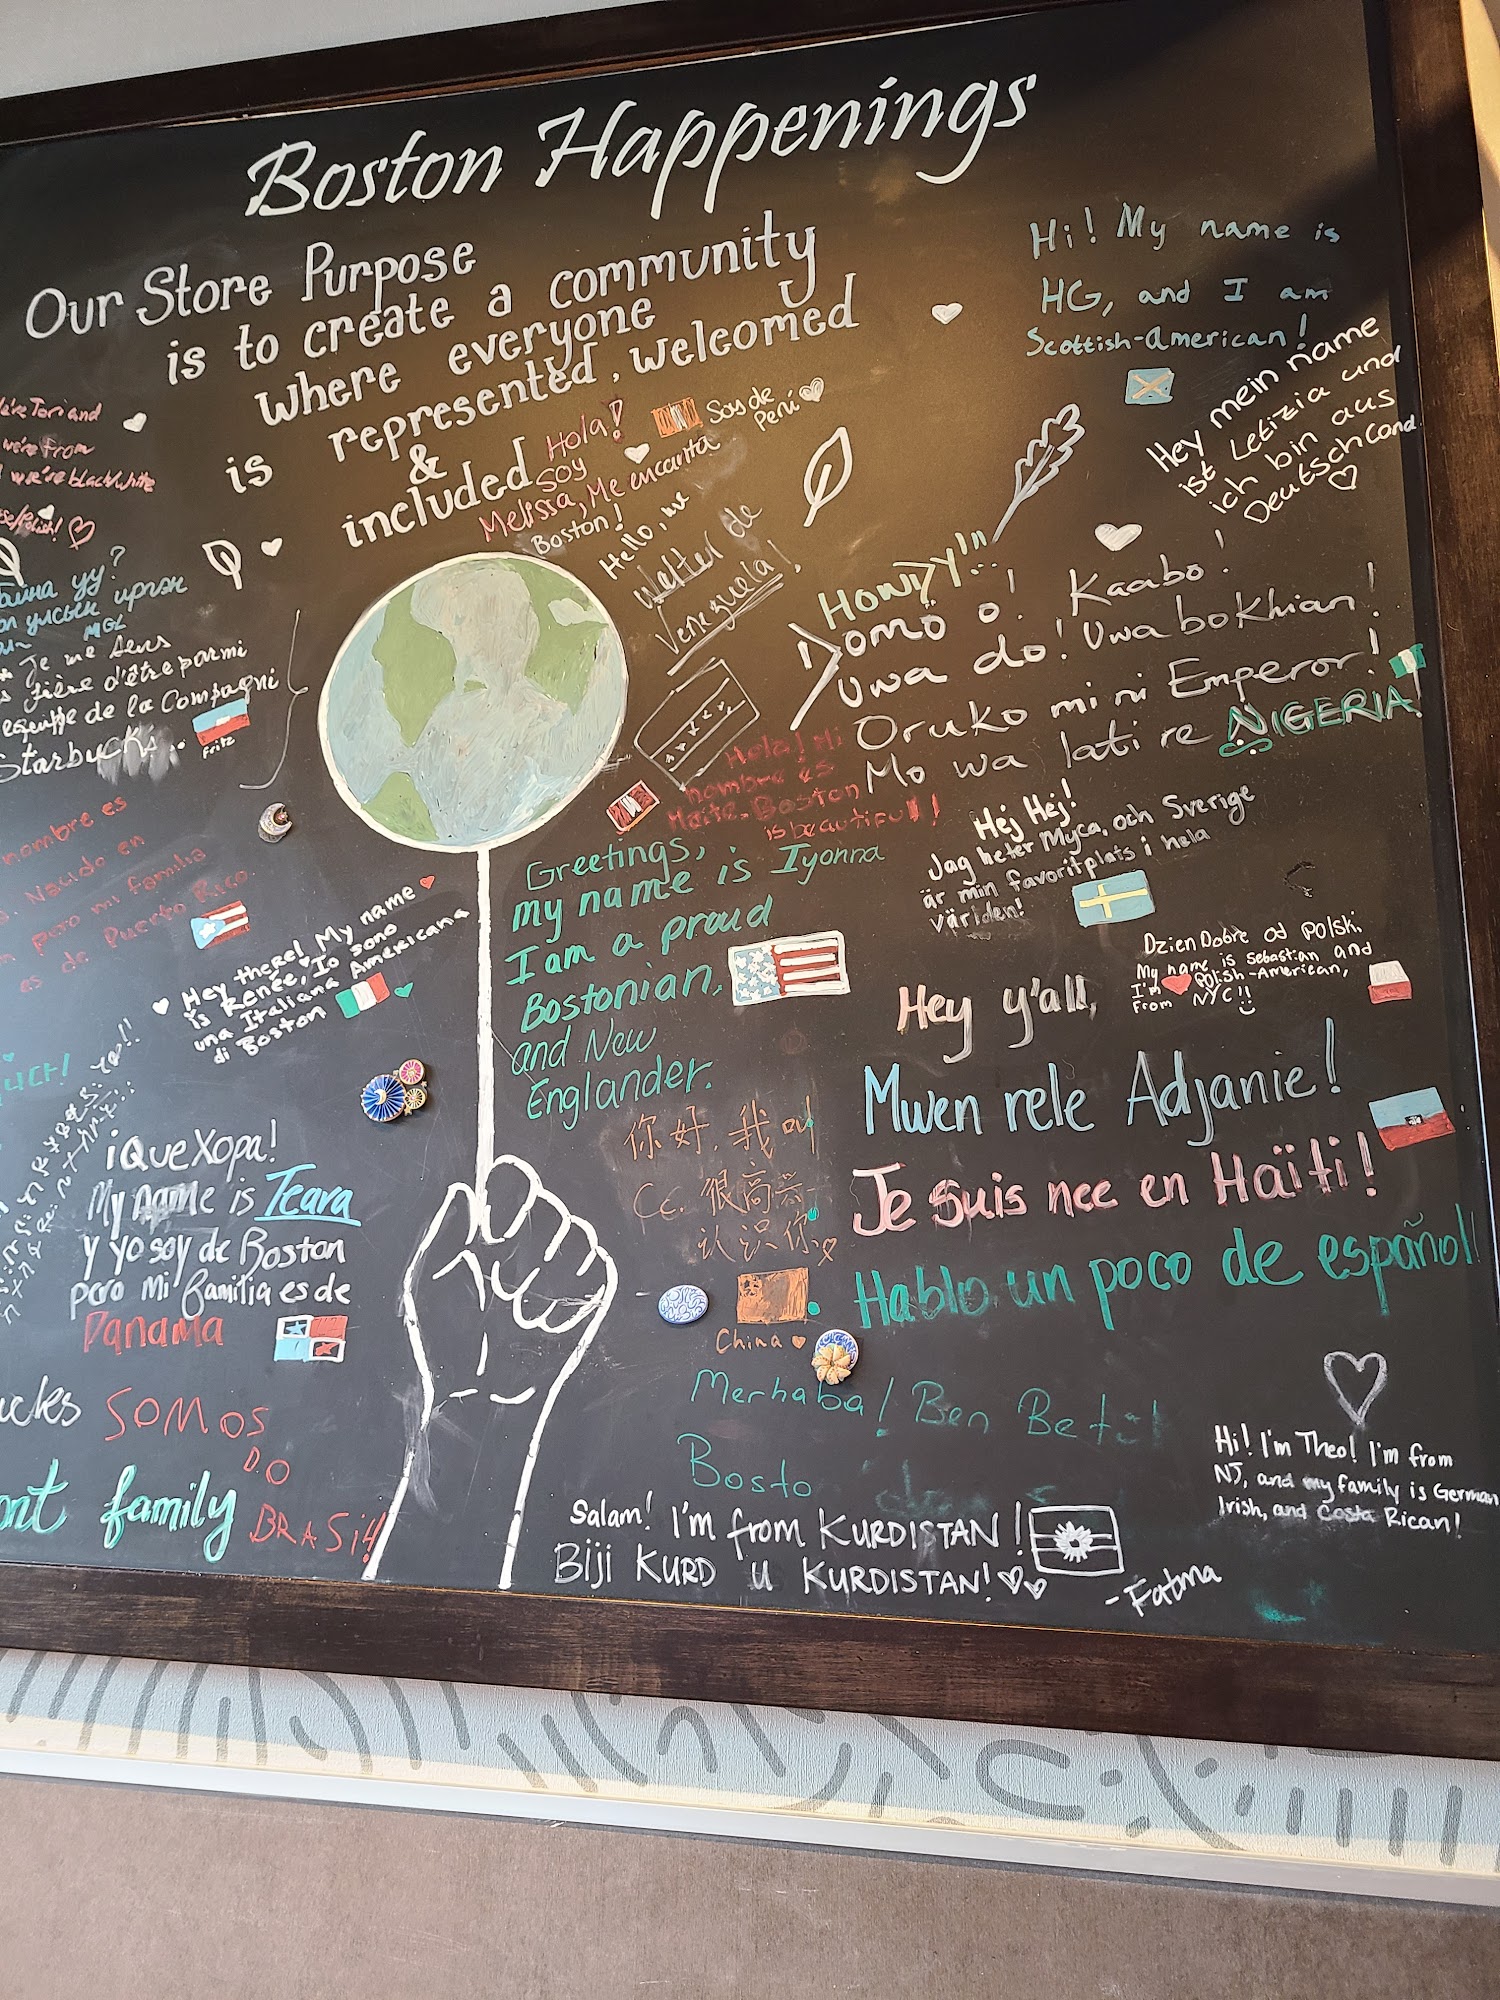 Boston Happenings
Our Store Purpose
is to create a community
where everyone
is represented, welcomed
&
included
Hi! My name is
HG, and I am
Scottish-American!
Hey mein name
ist Letizia und
ich bin aus
Deutschland
Tori and
we're from
we're black/white
Hola!
Soy
Melissa, Me encanta
Boston!
Soy de
Perú
Hello, me
Walter de
Venezuela!
Howdy!!!
Domo o! Kaabo!
Uwa do! Uwa bo Khian!
Oruko mi ni Emperor!
Mo wa lati re NIGERIA!
байна уу?
улсын иргэн
MGL
Je me sens
fière d'être parmi
de la Compagni
Starbucks..
Fritz
Hola! Mi
nombre es
Maite. Boston
is beautiful!
Hej Hej!
Jag heter Myca, och Sverige
är min favoritplats i hela
världen!
nombre es
Nacido en
pero mi familia
es de Puerto Rico.
Greetings,
my name is Iyonna
I am a proud
Bostonian,
and New
Englander.
Hey there! My name
is Renée, Io sono
una Italiana Americana
di Boston
Dzien Dobre od Polski.
My name is Sebastian and
I'm Polish-American,
From NYC!!
Hey y'all,
Mwen rele Adjanie!
Je suis nee en Haïti!
Hablo un poco de español!
你好,我叫
Cc. 很高兴
认识你
China
¡Que Xopa!
My name is Teara
y yo soy de Boston
pero mi familia es de
Panama
SOMOS
DO
BRASil
family
Merhaba! Ben
Bosto
Hi! I'm Theo! I'm from
NJ, and my family is German
Irish, and Costa Rican!
Salam! I'm from KURDISTAN!
Biji KURD u KURDISTAN!
-Fatma